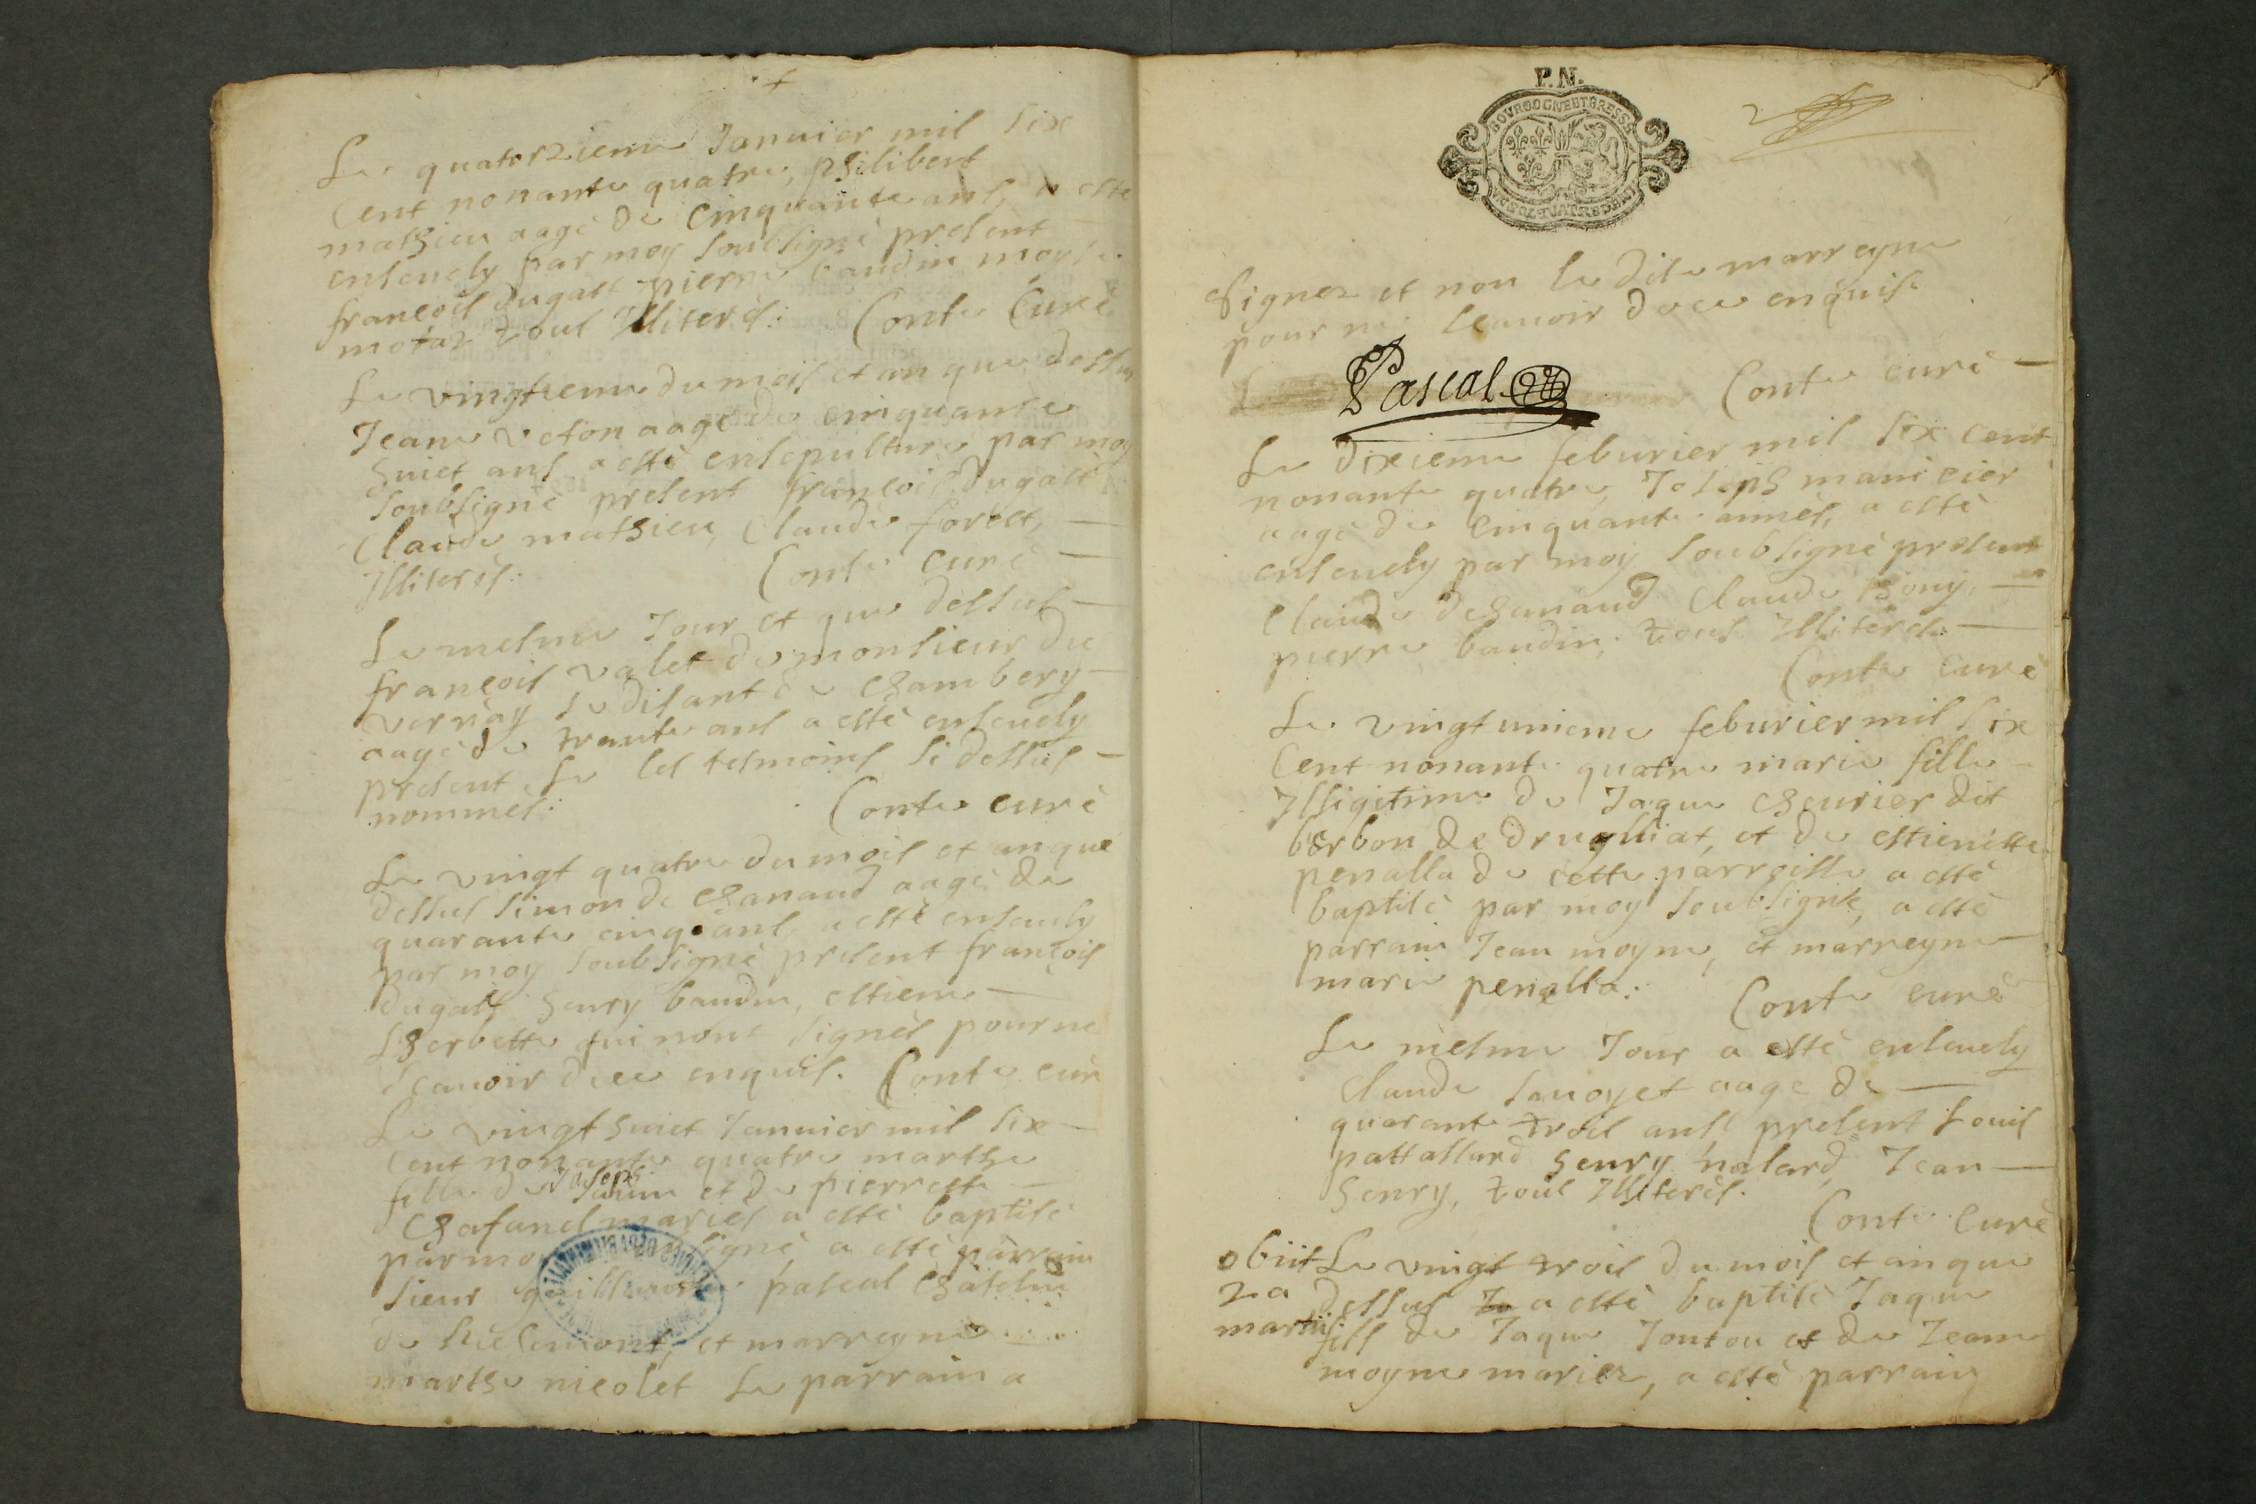 Le quatorzieme Januier mil six
cent nonante quatre, philibert
mathieu aagè de cinquante ans, a estè
enseuely par moy soubsignè present
françois dugast pierre baudin moyse
motaz tous Illiterès: Conte Curè
Le vingtieme du mois et an que dessus
Jeane veton aagè de cinquante
huict ans a estè ensepulturè par moy
soubsignè present françois dugast
Claude mathieu, Claude forest,
Illiterès: Conte curè
Le mesme Jour et que dessus
françois valet de monsieur du
vernay se disant de chambery
aagè de trante ans a estè enseuely
present Le les tesmoins si dessus
nommès: Conte curè
Le vingt quatre du mois et an que
dessus simon de chanaud aagè de
quarante cinq ans a estè enseuely
par moy soubsignè present françois
dugast henry baudin, estiene
Lherbette qui nont signès pour ne
scauoir de ce enquis. Conte cure
Le vingt huict Januier mil six
cent nonante quatre marthe
Joseph
fille de et de pierrette
chafanel mariès a estè baptisè
par moy a estè parrain
sieur pascal chatelin
de et marreyne
marthe nicolet Le parrain a
P.N.
BOVRGOGNE ET BRESSE
2
signez et non la dite marreyne
pour ne sçauoir de ce enquise
Pascal
Conte curè
Le dixieme feburier mil six cent
nonante quatre, Joseph manicier
aagè de cinquante annès, a estè
enseuely par moy soubsignè present
Claude dechanaud Claude bony,
pierre baudin, tous Illiterès
Conte Curè
Le vingt unieme feburier mil six
cent nonante quatre marie fille
Illigitime de Jaque cheurier dit
berbon de drughiat, et de estienette
penalla de cette parroisse a estè
baptisè par moy soubsignè, a estè
parrain Jean moyne, et marreyne
marie penalla: Conte curè
Le mesme Jour a estè enseuely
Claude sauoyet aage de
quarante trois ans, present Louis
pattallard henry nalard, Jean
henry, tous Illiterès.
Conte Curè
obiit Le vingt trois du mois et an que
2a dessus a estè baptisè Jaque
martii fils de Jaque Joutou et de Jeane
moyne mariez, a estè parrain